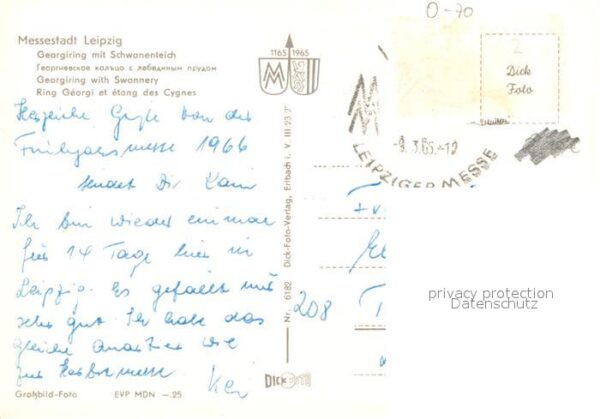 Messestadt Leipzig
Georgiring mit Schwanenteich
Георгиевское кольцо с лебединым прудом
Georgiring with Swannery
Ring Géorgi et étang des Cygnes
1165 1965
Herzliche Grüße von der
Frühjahrsmesse 1966
sendet Dir Karin
Ich bin wieder einmal
für 14 Tage hier in
Leipzig. Es gefällt mir
sehr gut. Ich habe das
gleiche Quartier wie
zur Herbstmesse.
Großbild-Foto EVP MDN —.25
Nr. 6182 Dick-Foto-Verlag, Erlbach i. V. III 23 2
DICK
208
O-70
Dick
Foto
LEIPZIGER MESSE
privacy protection
Datenschutz